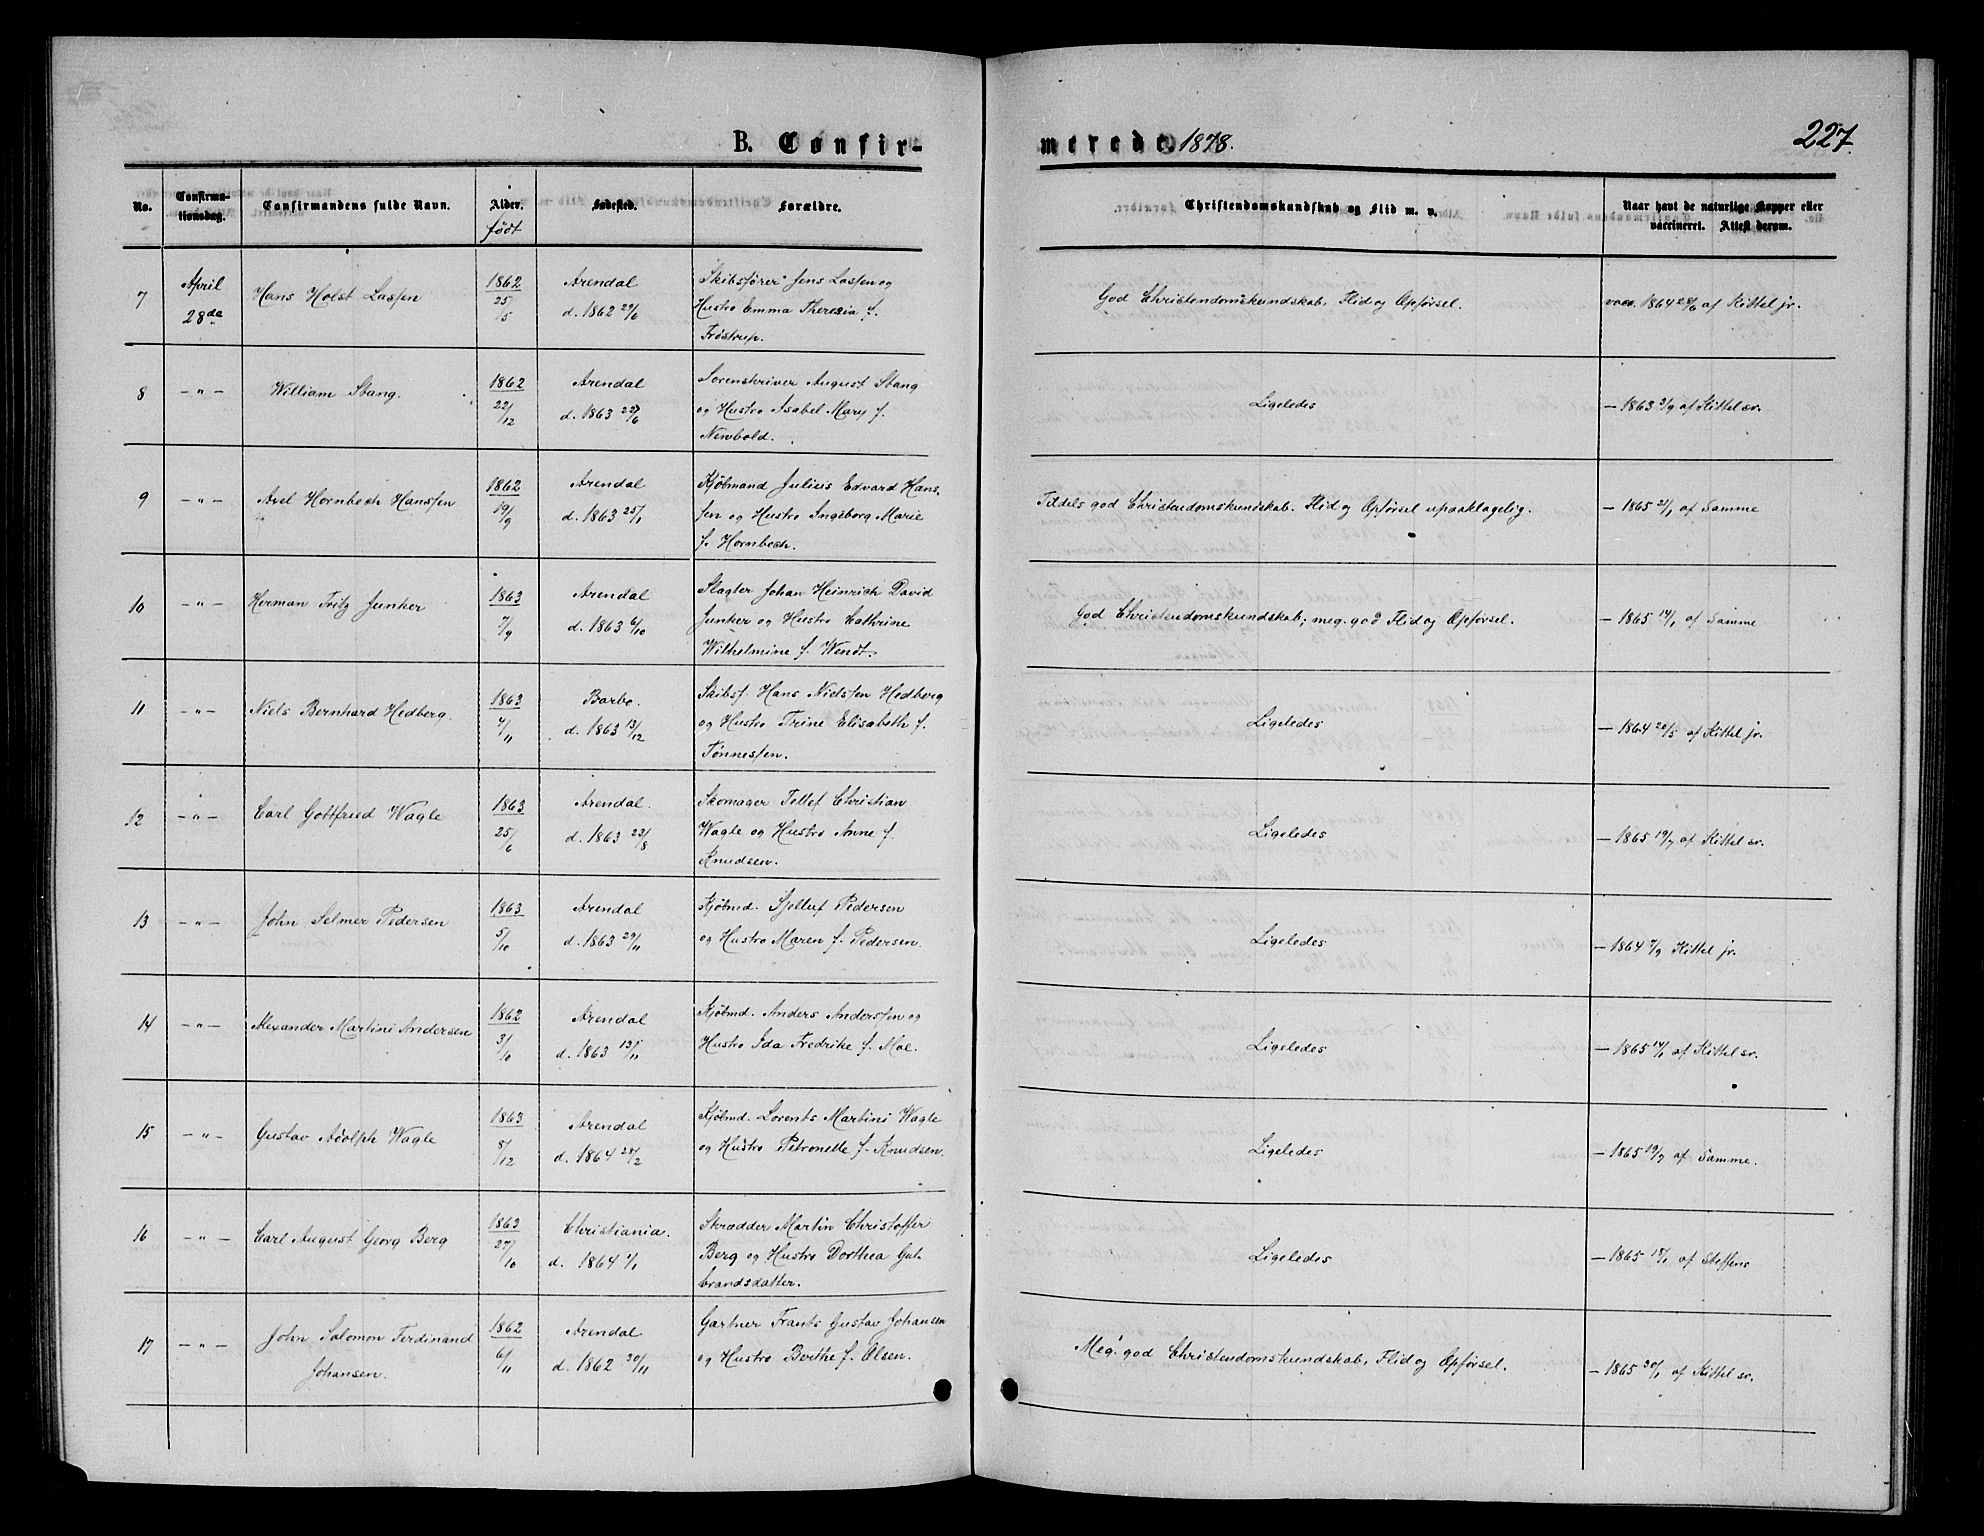 B. Confirmerede 1878.
227.
No. Confirmationsdag. Confirmandens fulde Navn. Alder. født Fødested. Forældre. Christendomskundskab og Flid m. v. Naar havt de naturlige Kopper eller vaccineret. Attest derom.
7 April 28de Hans Holst Lassen 1862 25/5 Arendal d. 1862 29/6 Skibsfører Jens Lassen og
Hustro Emma Theresia f.
Frøstrup.
God Christendomskundskab, Flid og Opførsel. vacc. 1864 28/6 af Kittel jr.
8 — " — William Stang. 1862 22/12 Arendal d. 1863 22/6 Sorenskriver August Stang
og Hustro Isabel Mary f.
Newbold.
Ligeledes — 1863 3/9 af Kittel sr.
9 — " — Axel Hornbech Hanssen 1862 19/9 Arendal d. 1863 25/1 Kjöbmand Julius Edvard Hans-
sen og Hustro Ingeborg Marie
f. Hornbech.
Tildels god Christendomskundskab. Flid og Opførsel upaaklagelig. — 1865 21/1 af Samme
10 — " — Herman Fritz Junker 1863 7/9 Arendal d. 1863 6/10 Slagter Johan Heinrich David
Junker og Hustro Cathrine
Wilhelmine f. Wendt.
God Christendomskundskab; meg. god Flid og Opførsel. — 1865 14/1 af Samme
11 — " — Niels Bernhard Hedberg. 1863 4/11 Barbo. d. 1863 13/12 Skibsf. Hans Nielssen Hedberg
og Hustro Trine Elisabeth f.
Tönnessen.
Ligeledes — 1864 28/5 af Kittel jr.
12 — " — Carl Gottfried Wagle 1863 25/6 Arendal. d. 1863 23/8 Skomager Tellef Christian
Wagle og Hustro Anne f.
Knudsen.
Ligeledes — 1865 19/7 af Kittel sr.
13 — " — John Selmer Pedersen 1863 5/10 Arendal d. 1863 29/11 Kjöbmd. Sjelluf Pedersen
og Hustro Maren f. Pedersen.
Ligeledes — 1864 7/9 Kittel jr.
14 — " — Alexander Martini Andersen 1862 3/10 Arendal d. 1863 13/11 Kjöbmd. Anders Anderssen og
Hustro Ida Fredrike f. Moe.
Ligeledes — 1865 14/1 af Kittel sr.
15 — " — Gustav Adolph Wagle 1863 8/12 Arendal d. 1864 28/2 Kjöbmd. Lorents Martini Wagle
og Hustro Petronelle f. Knudsen.
Ligeledes — 1865 19/7 af Samme.
16 — " — Carl August Georg Berg 1863 27/10 Christiania. d. 1864 1/1 Skrædder Martin Christoffer
Berg og Hustro Dorthea Gul-
brandsdatter.
Ligeledes — 1865 18/1 af Steffens
17 — " — John Salomon Ferdinand
Johansen. 1862 6/11 Arendal d. 1862 30/11 Gartner Frants Gustav Johansen
og Hustro Berthe f. Olsen.
Meg. god Christendomskundskab, Flid og Opførsel. — 1865 30/1 af Kittel sr.